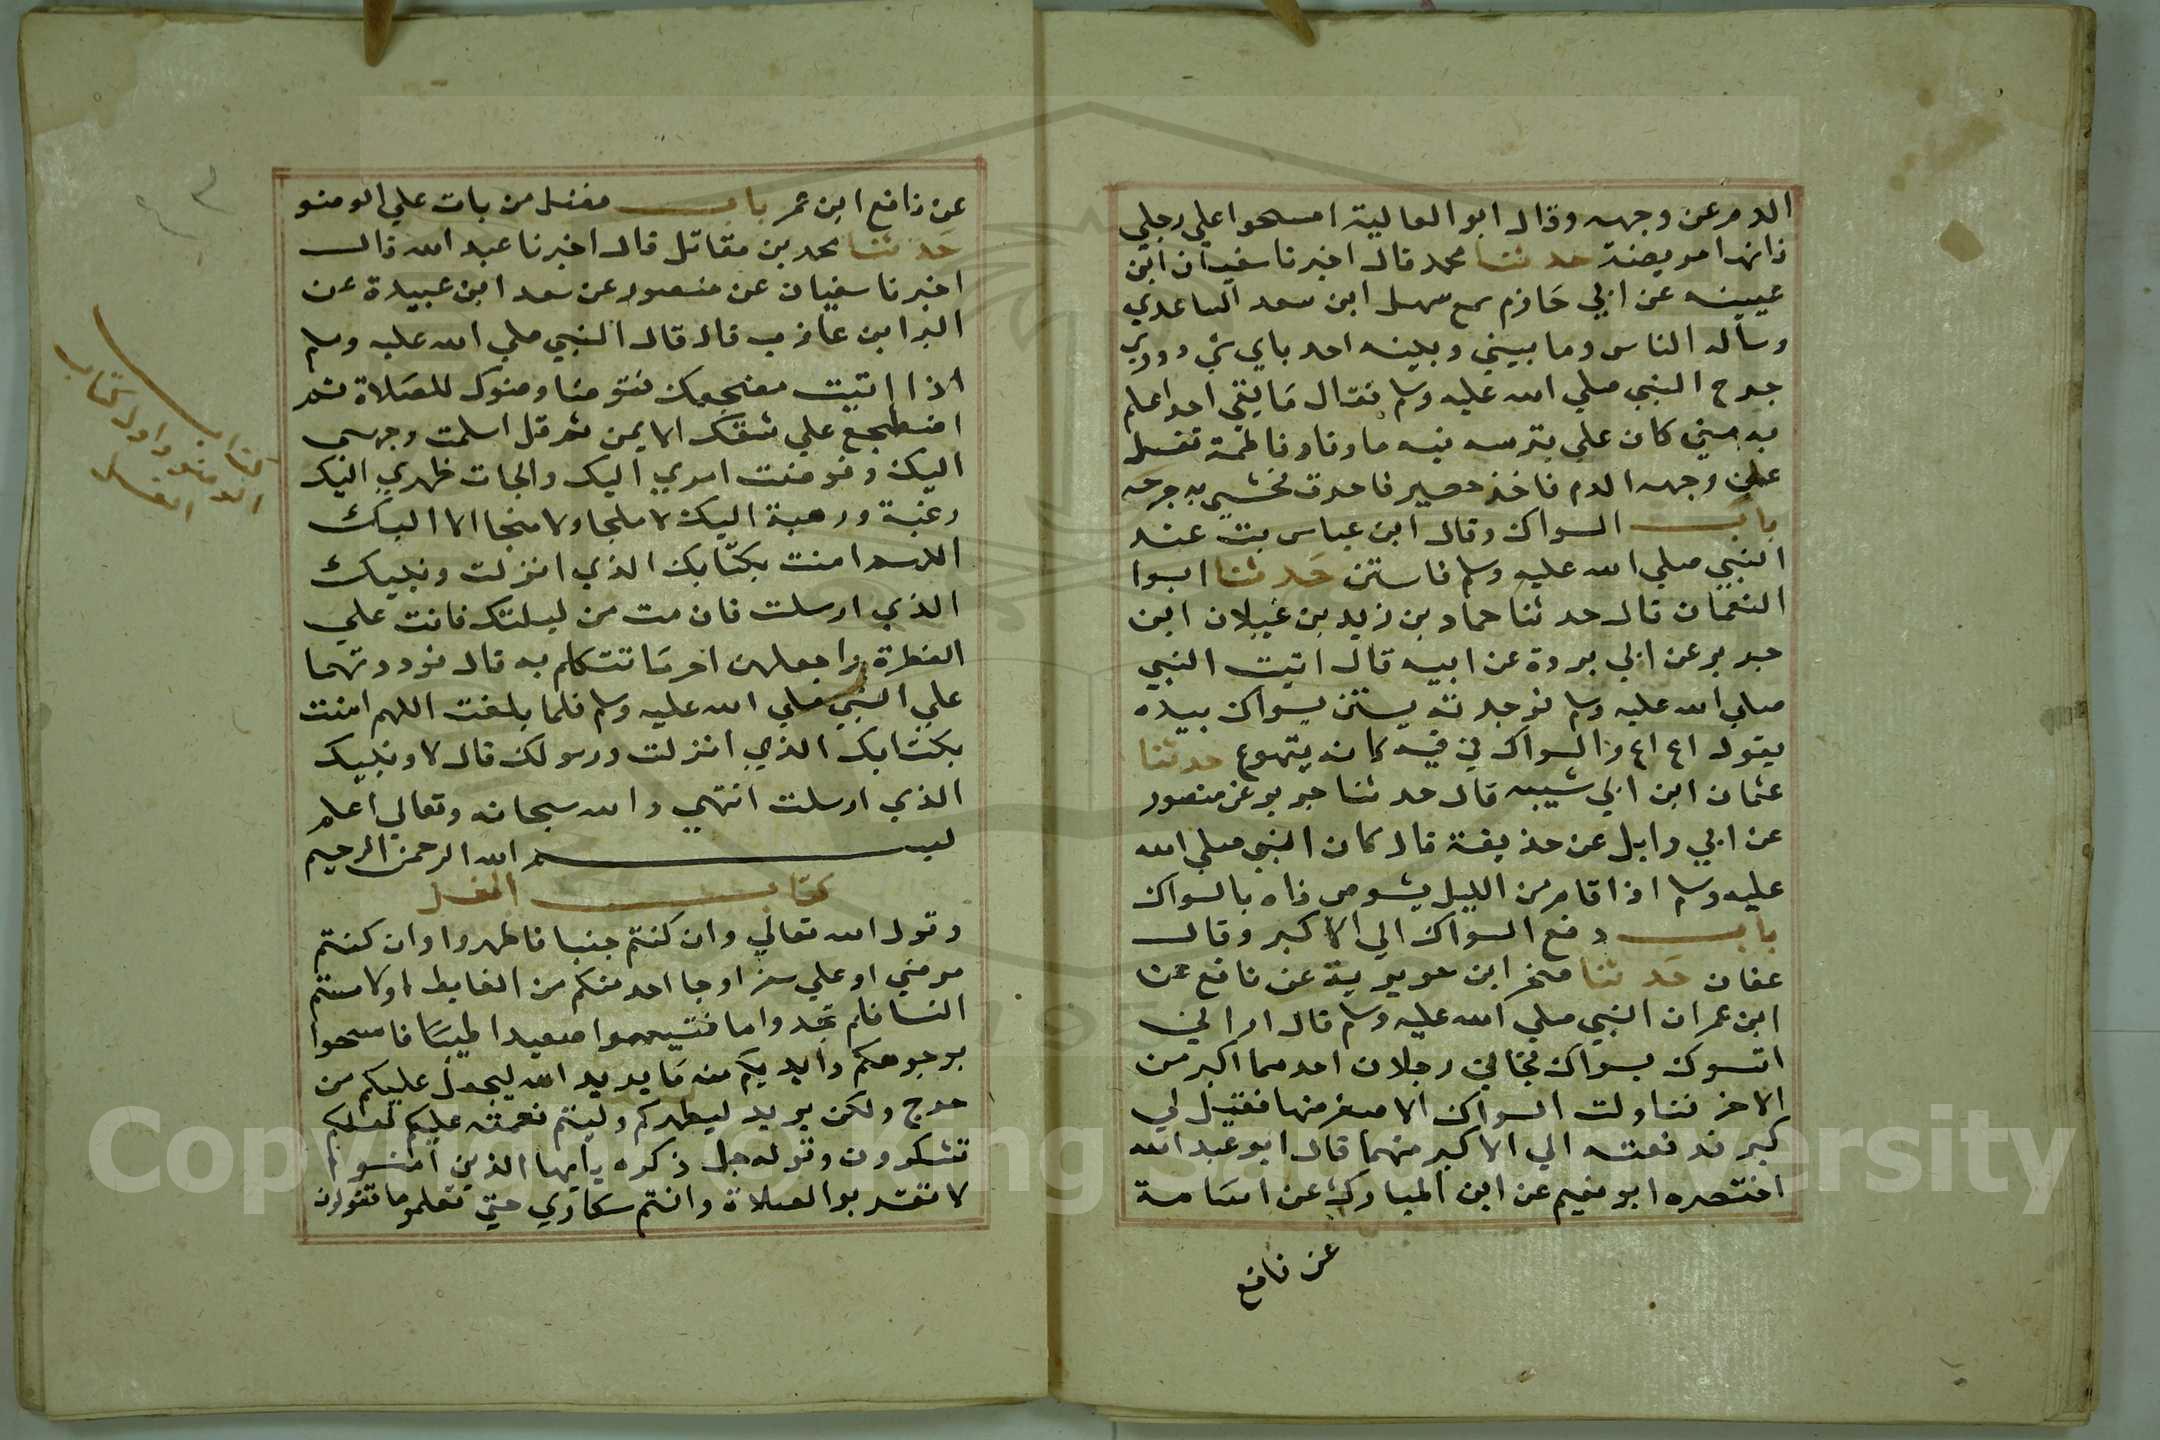 الدم عن وجهه وقال ابو العالية امسحوا علي رجلي
فانها مريضة حدثنا محمد قال اخبرنا سفيان ابن
عيينه عن ابي حازم سمع سهل ابن سعد الساعدي
وساله الناس وما بيني وبينه احد باي شي دووي
جرح النبي صلي الله عليه وسلم فقال ما بقي احد اعلم
به مني كان علي بترسه فيه ماء وفاطمة تغسل
علي وجهه الدم فاخذ حصير فاحرق فحشي به جرحه
باب السواك وقال ابن عباس بت عند
النبي صلي الله عليه وسلم فاستن حدثنا ابوا
النعمان قال حدثنا حماد بن زيد بن غيلان ابن
جرير عن ابي بردة عن ابيه قال اتيت النبي
صلي الله عليه وسلم فوجدته يستن بسواك بيده
يقول اع اع والسواك في فيه كانه يتهوع حدثنا
عثمان ابن ابي شيبه قال حدثنا جرير عن منصور
عن ابي وايل عن حذيفة قال كان النبي صلي الله
عليه وسلم اذا قام من الليل يشوص فاه بالسواك
باب دفع السواك الي الاكبر وقال
عفان حدثنا صخر ابن جويرية عن نافع عن
ابن عمر ان النبي صلي الله عليه وسلم قال اراني
اتسوك بسواك فجاني رجلان احدهما اكبر من
الاخر فناولت السواك الاصغر منهما فقيل لي
كبر فدفعته الي الاكبر منهما قال ابو عبد الله
اختصره ابو نعيم عن ابن المبارك عن اسامة
عن نافع
عن نافع ابن عمر باب فضل من بات علي الوضو
حدثنا محمد بن مقاتل قال اخبرنا عبد الله قال
اخبرنا سفيان عن منصور عن سعد ابن عبيدة عن
البرا بن عازب قال قال النبي صلي الله عليه وسلم
اذا اتيت مضجعك فتوضا وضوك للصلاة ثم
اضطجع علي شقك الايمن ثم قل اسلمت وجهي
اليك وفوضت امري اليك والجات ظهري اليك
رغبة ورهبة اليك لا ملجا ولا منجا الا اليك
اللهم امنت بكتابك الذي انزلت ونبيك
الذي ارسلت فان مت من ليلتك فانت علي
الفطرة واجعلهن اخر ما تتكلم به قال فرددتهما
علي النبي صلي الله عليه وسلم فلما بلغت اللهم امنت
بكتابك الذي انزلت ورسولك قال لا ونبيك
الذي ارسلت انتهي والله سبحانه وتعالي اعلم
بسم الله الرحمن الرحيم
كتاب الغسل
وقول الله تعالي وان كنتم جنبا فاطهروا وان كنتم
مرضي او علي سفر او جا احد منكم من الغايط او لامستم
النسا فلم تجدوا ما فتيمموا صعيدا طيبا فامسحوا
بوجوهكم وايديكم منه ما يريد الله ليجعل عليكم من
حرج ولكن يريد ليطهركم وليتم نعمته عليكم لعلكم
تشكرون وقوله جل ذكره يايها الذين امنوا
لا تقربوا الصلاة وانتم سكاري حتي تعلموا ما تقولون
كتاب
الوضو واول كتاب
الغسل
Copyright © King Saud University